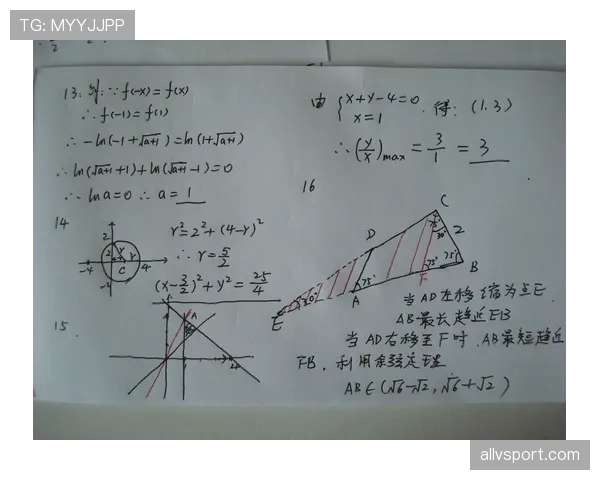 TG: MYYJJPP
13: 解: ∵ f(-x) = f(x)
∴ f(-1) = f(1)
∴ -ln(-1+√a+1) = ln(1+√a+1)
∴ ln(√a+1+1) + ln(√a+1-1) = 0
∴ lna=0 ∴ a= 1
14
2
2
r
r
-4
C
4
-4
r²=2²+(4-r)²
∴ r=5/2
(x-3/2)²+y²=25/4
15
1
4
由 {x+y-4=0 x=1 . 得: (1,3)
∴ (y/x)max = 3/1 = 3
16
C
75°
30°
2
D
75°
75°
75°
F
B
A
30°
E
当AD左移缩为点E
AB最长趋近EB
当AD右移至F时,AB最短趋近
FB, 利用余弦定理
AB∈(√6-√2, √6+√2)
allvsport.com